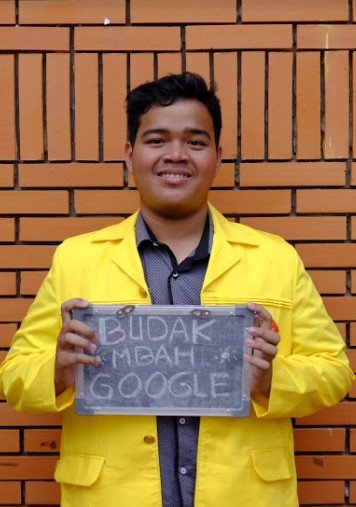 BUDAK
MBAH
GOOGLE